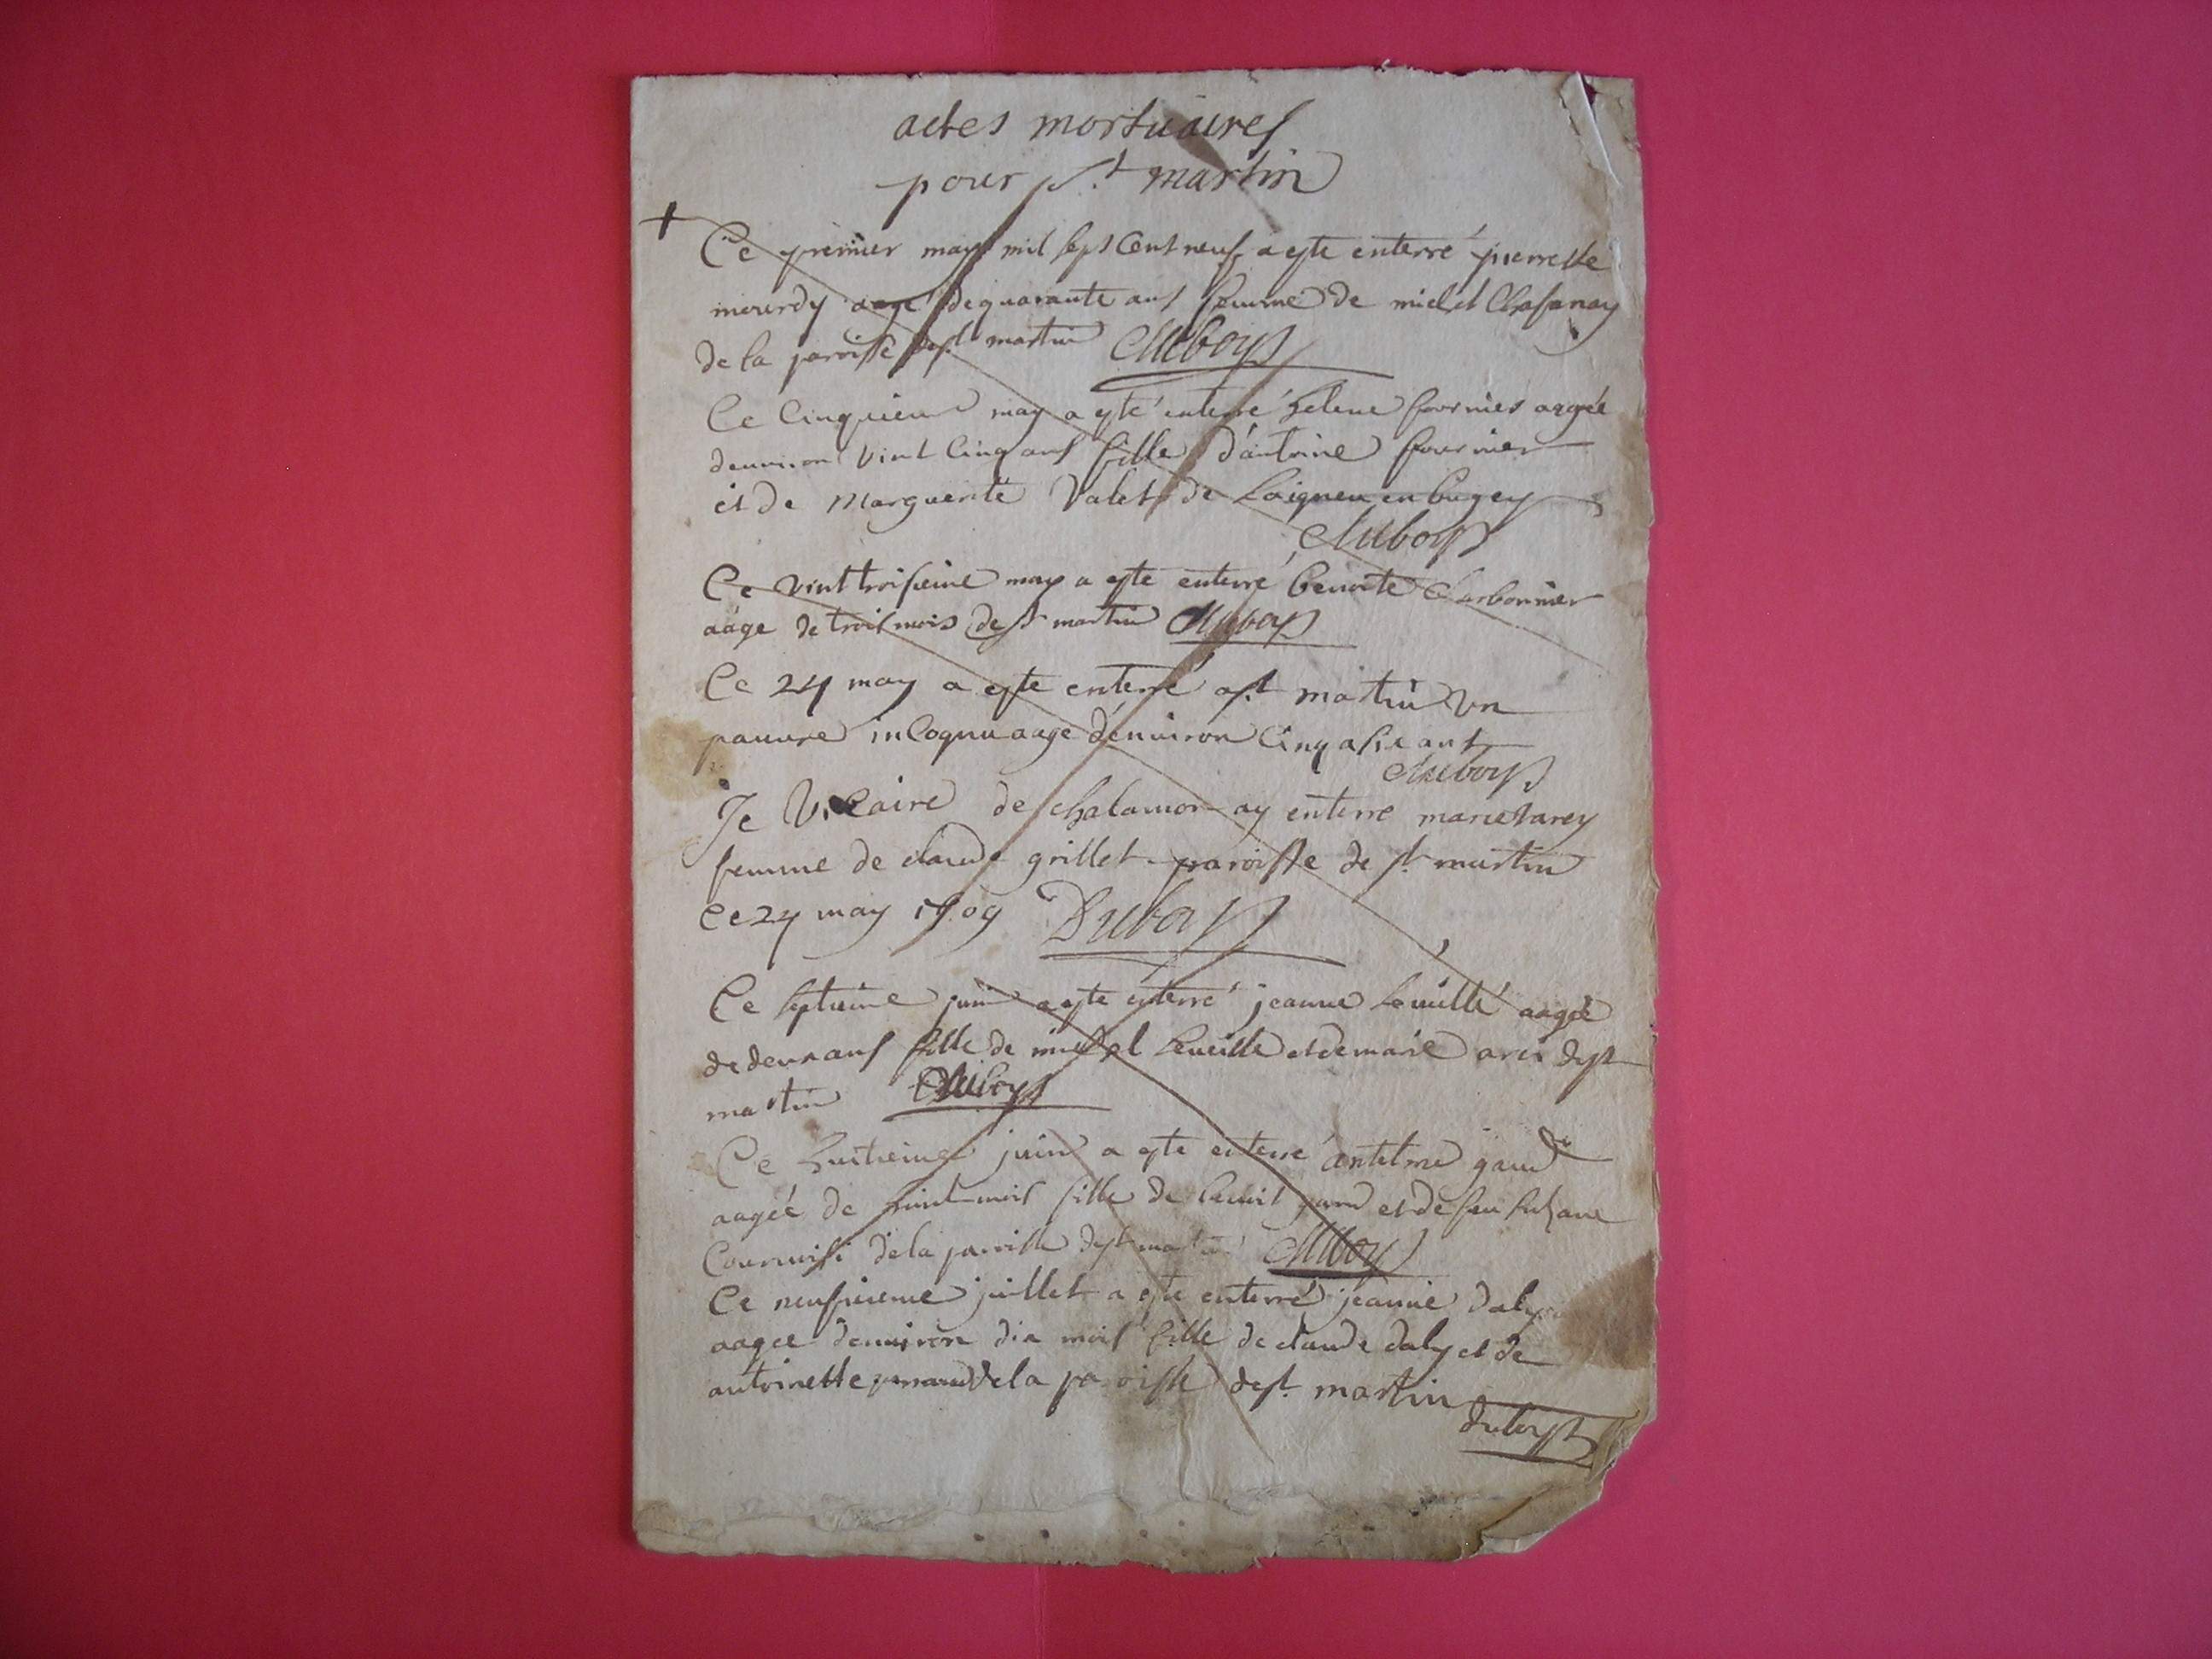 actes mortuaires
pour St martin
Ce premier may mil sept Cent neuf a este enterré pierrette
aagé de quarante ans femme de michel Chasanay
de la paroisse de st martin Duboys
Ce Cinquieme may a esté enterré helene fournier aagée
denuiron vint Cinq ans fille d'antoine fournier
et de Marguerite Valet de Laigneu en bugey
Duboys
Ce vint troisieme may a este enterré benoite Charbonnier
aage de trois mois de st martin Duboys
Ce 24 may a este enterré a st martin Un
pauure incognu aage d'enuiron Cinq a six ans
Duboys
Je Vicaire de chalamon ay enterre marie
femme de claude grillet paroisse de st martin
ce 24 may 1709 Duboys
Ce septieme juin a este enterré jeanne aagée
de deux ans fille de michel et de marie de st
martin Duboys
Ce huitieme juin a este enterré antelme
aagée de mois fille de benoit et de feu susane
de la paroisse de st martin Duboys
Ce neufuieme juillet a este enterré jeanne daly
aagee denuiron dix mois fille de claude daly et de
antoinette de la paroisse de st martin
duboys